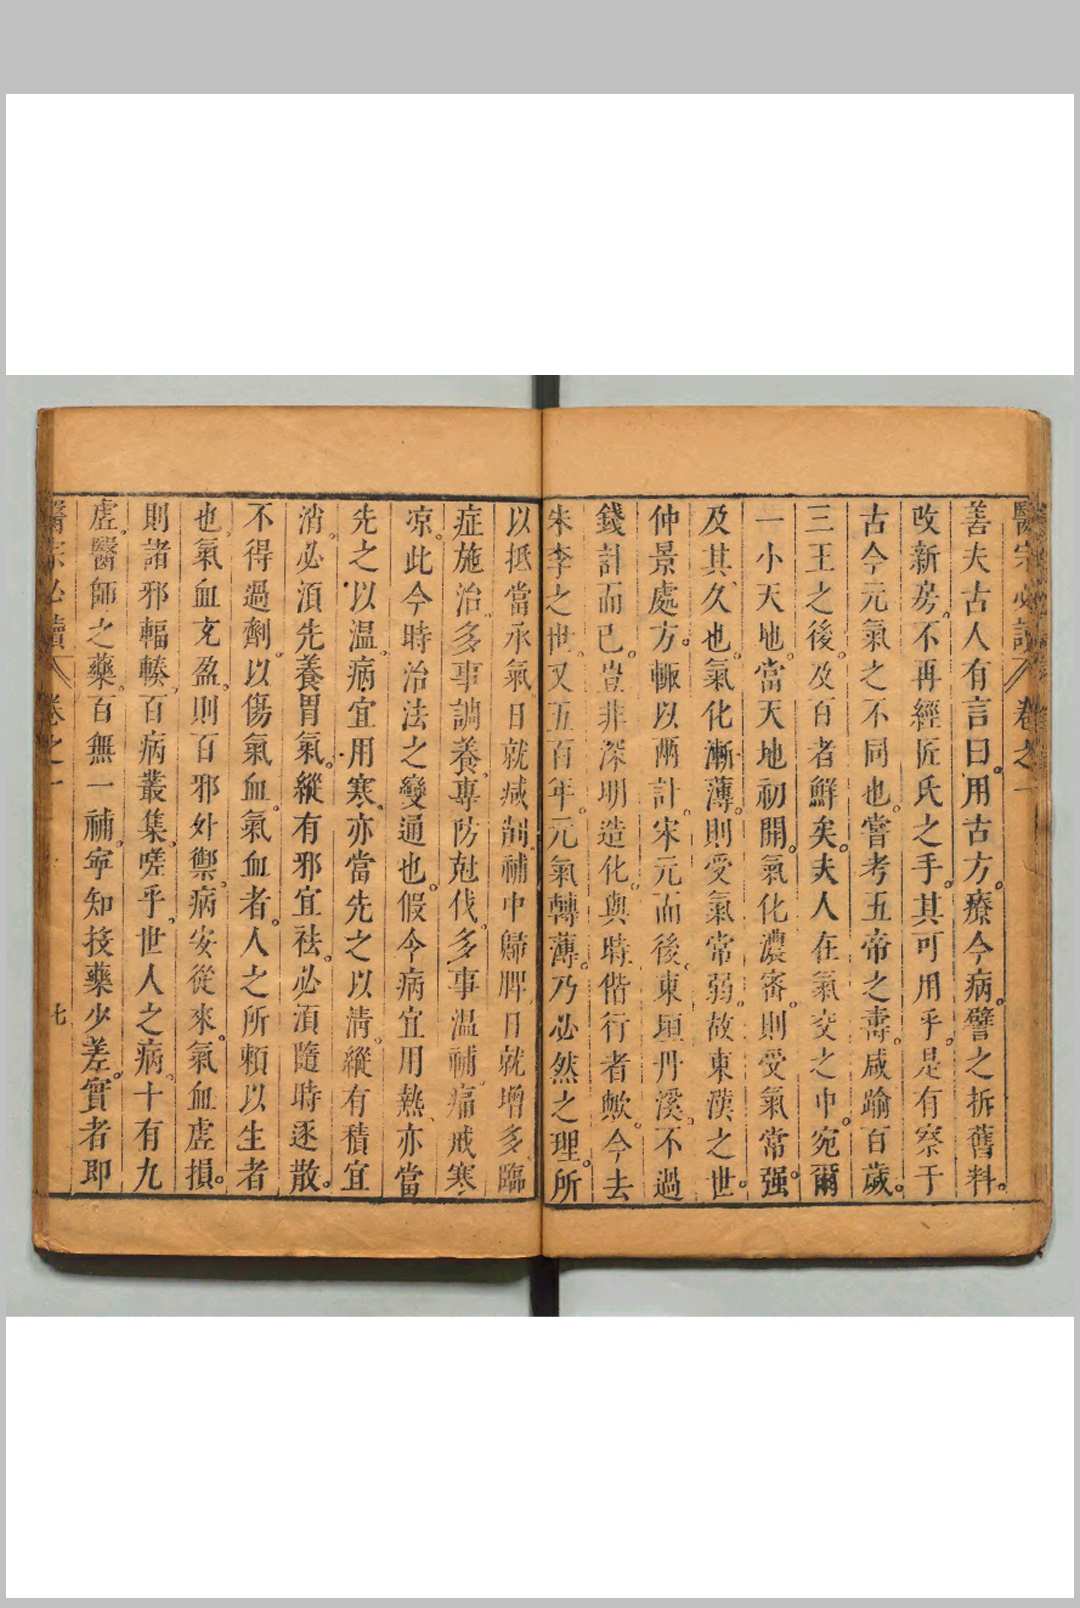 醫宗必讀 卷之一
善夫古人有言曰用古方療今病譬之拆舊料
改新房不再經匠氏之手其可用乎是有察于
古今元氣之不同也嘗考五帝之壽咸踰百歲
三王之後及百者鮮矣夫人在氣交之中宛爾
一小天地當天地初開氣化濃密則受氣常强
及其久也氣化漸薄則受氣常弱故東漢之世
仲景處方輒以兩計宋元而後東垣丹溪不過
錢計而已豈非深明造化與時偕行者歟今去
朱李之世又五百年元氣轉薄乃必然之理所
以抵當承氣日就減削補中歸脾日就增多臨
症施治多事調養專防尅伐多事温補痛戒寒
凉此今時治法之變通也假令病宜用熱亦當
先之以温病宜用寒亦當先之以清縱有積宜
消必湏先養胃氣縱有邪宜祛必湏隨時逐散
不得過劑以傷氣血氣血者人之所頼以生者
也氣血充盈則百邪外禦病安從來氣血虗損
則諸邪輻輳百病叢集嗟乎世人之病十有九
虗醫師之藥百無一補寜知投藥少差實者即
醫宗必讀 卷之一 七